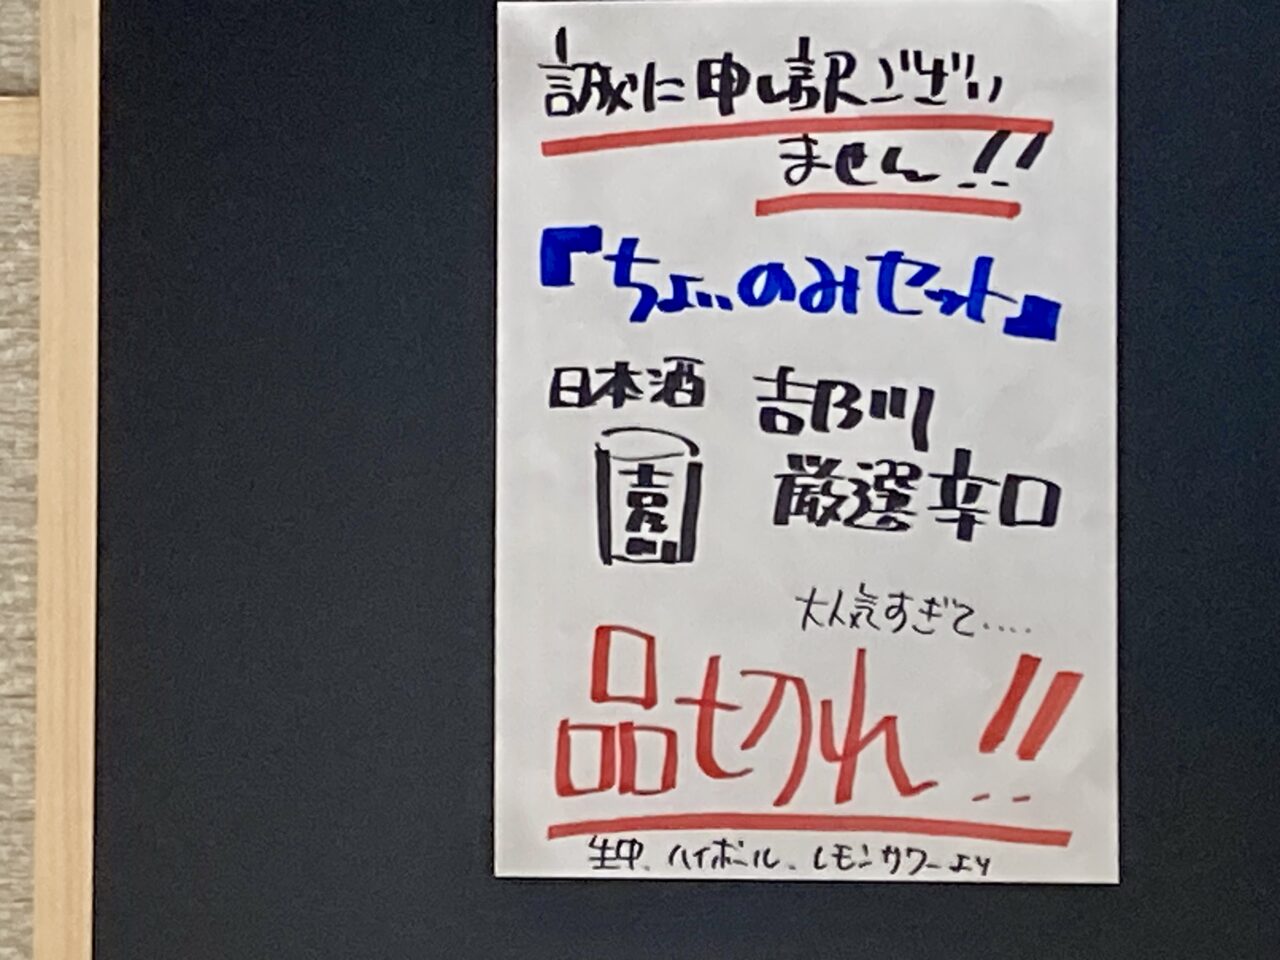 誠に申し訳ござい
ません!!
『ちょいのみセット』
日本酒
吉乃川
厳選辛口
大人気すぎて....
品切れ!!
生中、ハイボール、レモンサワーより